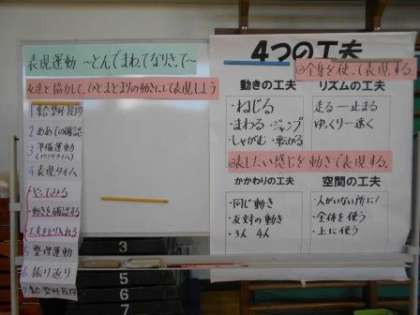 表現運動 ～とんでまわってなりきって～
友達と協力して、ひとまとまりの動きにして表現しよう
2 めあての確認
3 準備運動
4 表現タイム
・やってみる
・動きを確認する
・工夫をとり入れる
5 整理運動
6 振り返り
3
5
6
7
4つの工夫
◎全身を使って表現する。
動きの工夫
・ねじる
・まわる ・ジャンプ
・しゃがむ ・転がる
リズムの工夫
・走る ― 止まる
・ゆっくり ― 速く
◎表したい感じを動きで表現する。
かかわりの工夫
・同じ動き
・反対の動き
・3人 4人
空間の工夫
・人がいない所に!
・全体を使う
・上に使う